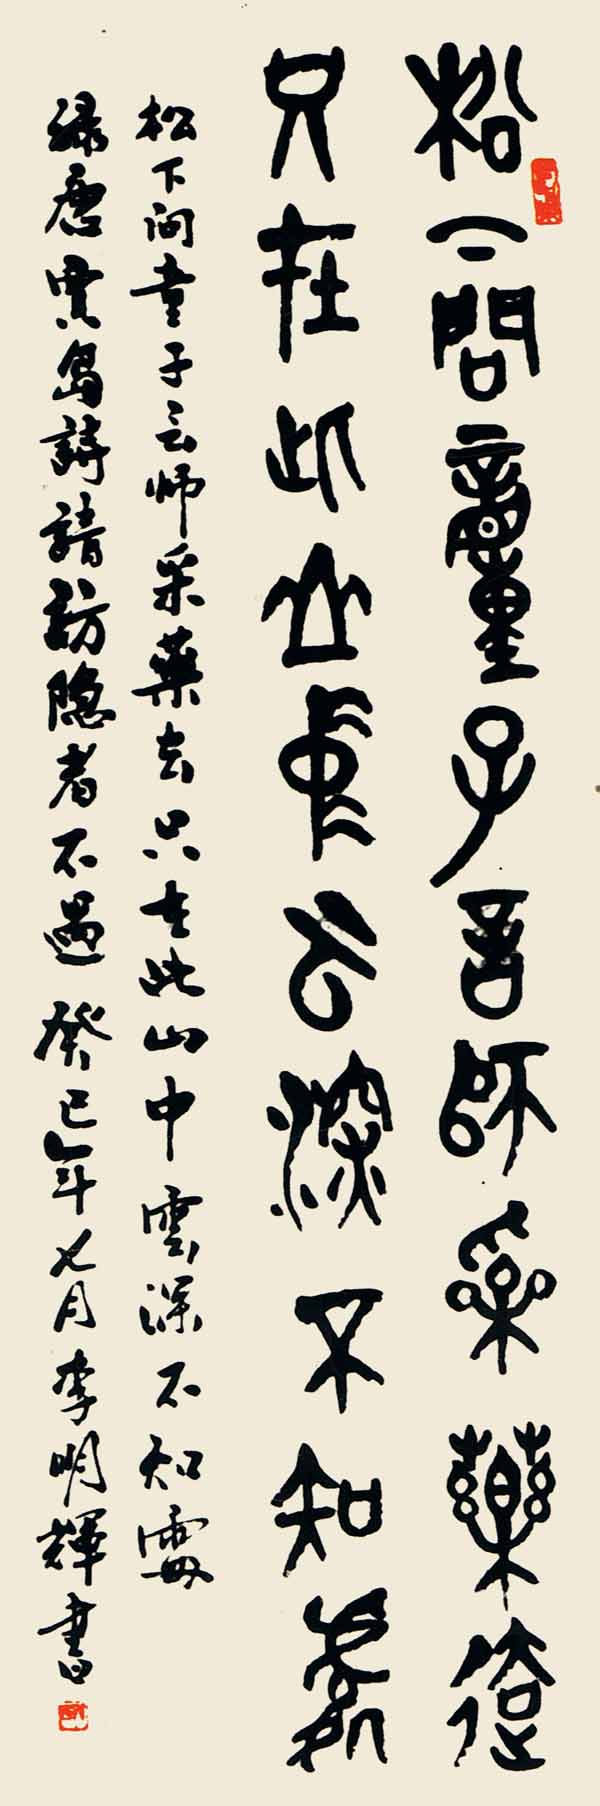 松下問童子言師采藥去
只在此山中云深不知處
松下问童子言师采藥去只在此山中雲深不知處
録唐賈島詩請訪隐者不遇 癸巳年七月李明輝書